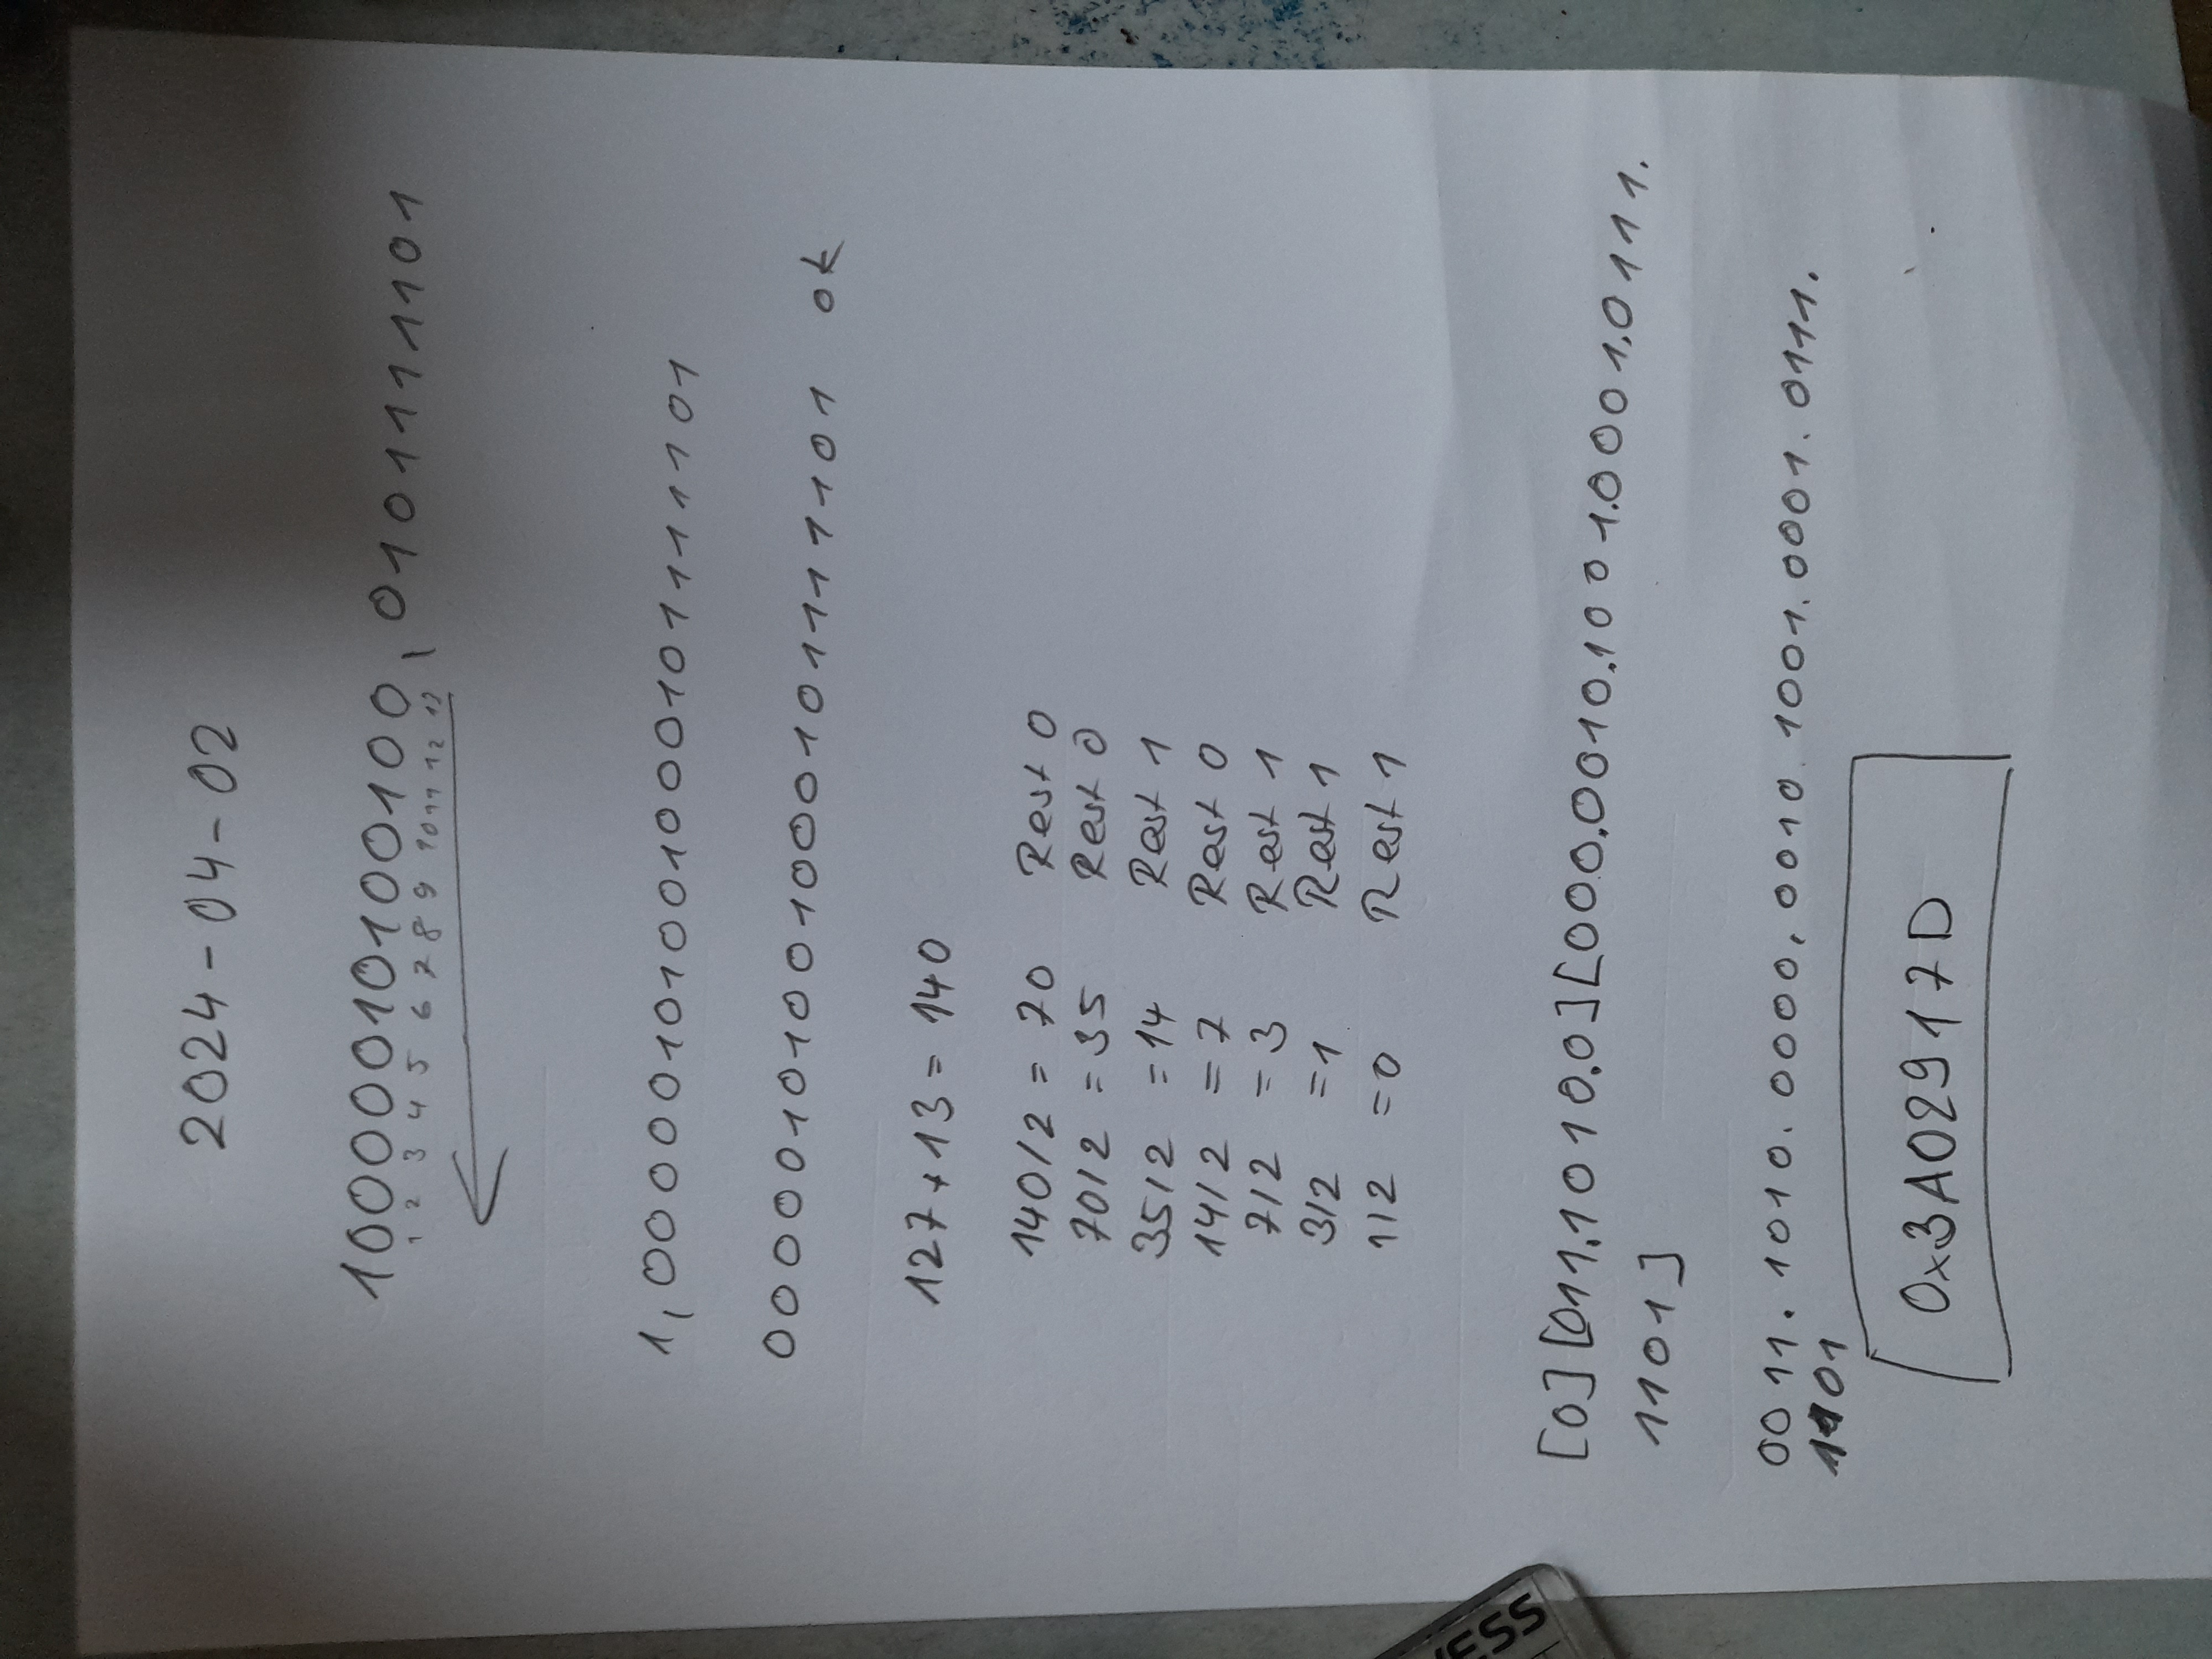 2024-04-02
10000010100100,0101111101
1 2 3 4 5 6 7 8 9 10 11 12 13
1,00000101001000101111101
00000101001000101111101 ok
127+13=140
140/2 = 70 Rest 0
70/2 = 35 Rest 0
35/2 = 14 Rest 1
14/2 = 7 Rest 0
7/2 = 3 Rest 1
3/2 = 1 Rest 1
1/2 = 0 Rest 1
[0][011.1010.0][000.0010.1001.0001.0111.
1101]
0011.1010.0000.0010.1001.0001.0111.
1101
0x3A02917D